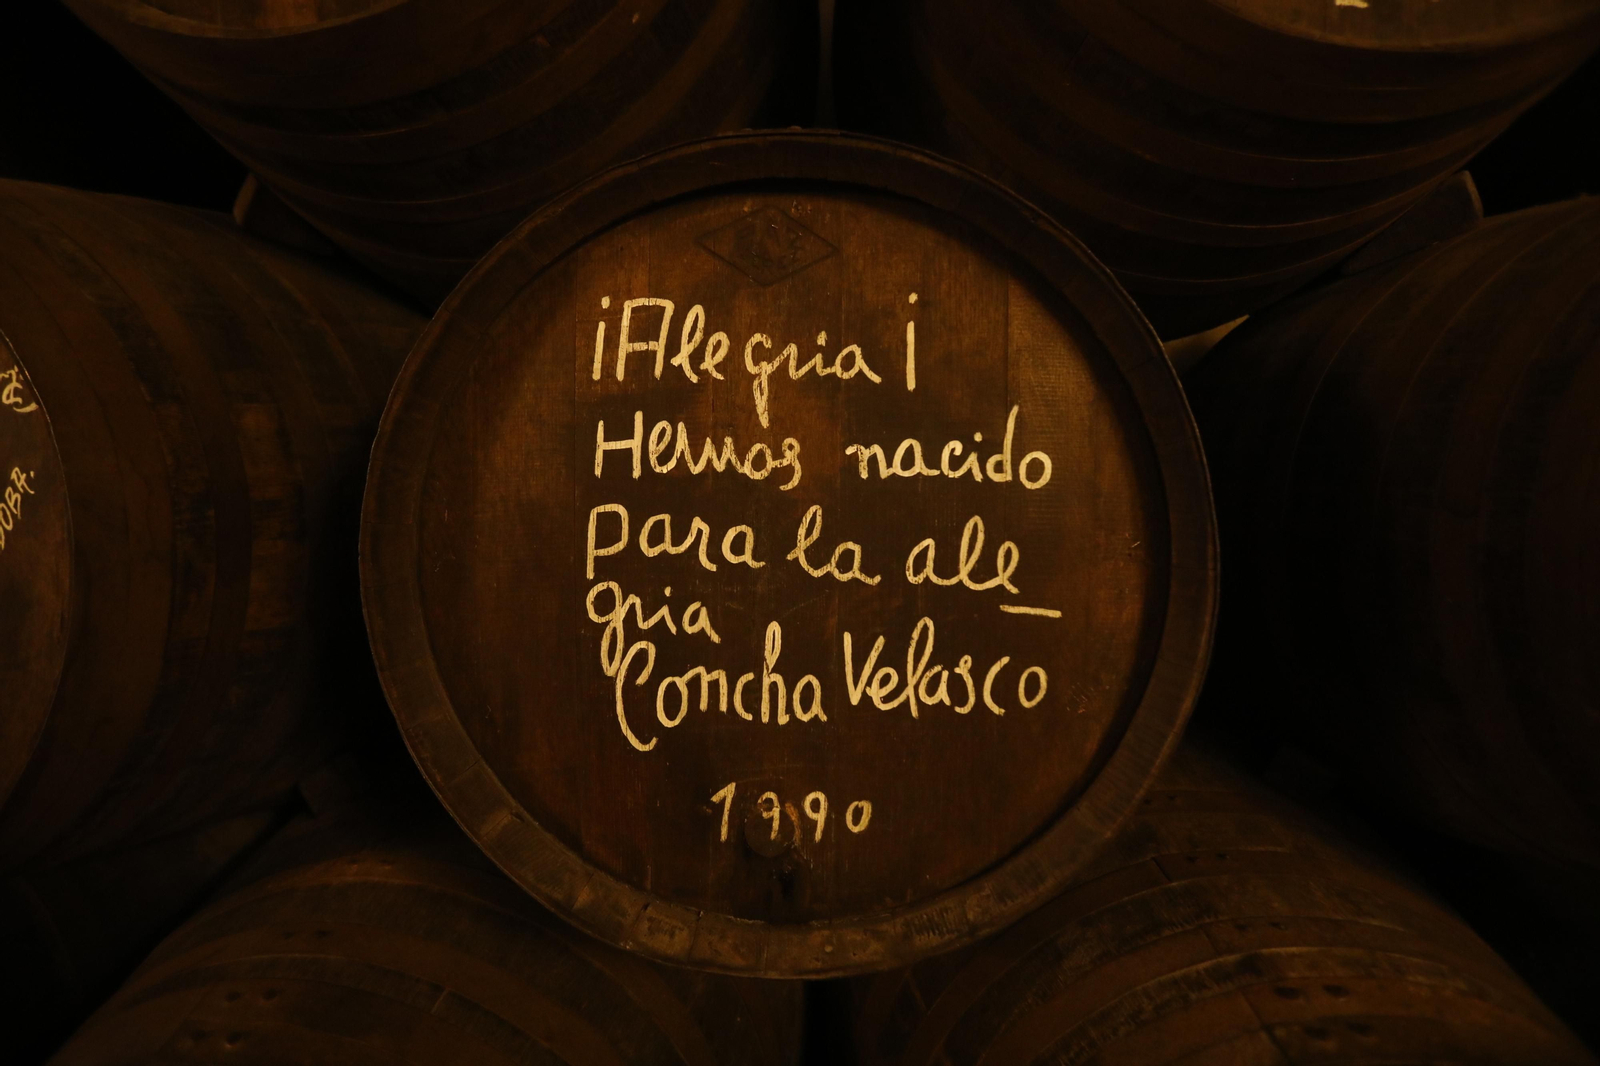 ¡Alegria¡
Hemos nacido
para la ale_
gria
Concha Velasco
1990
DOBA.